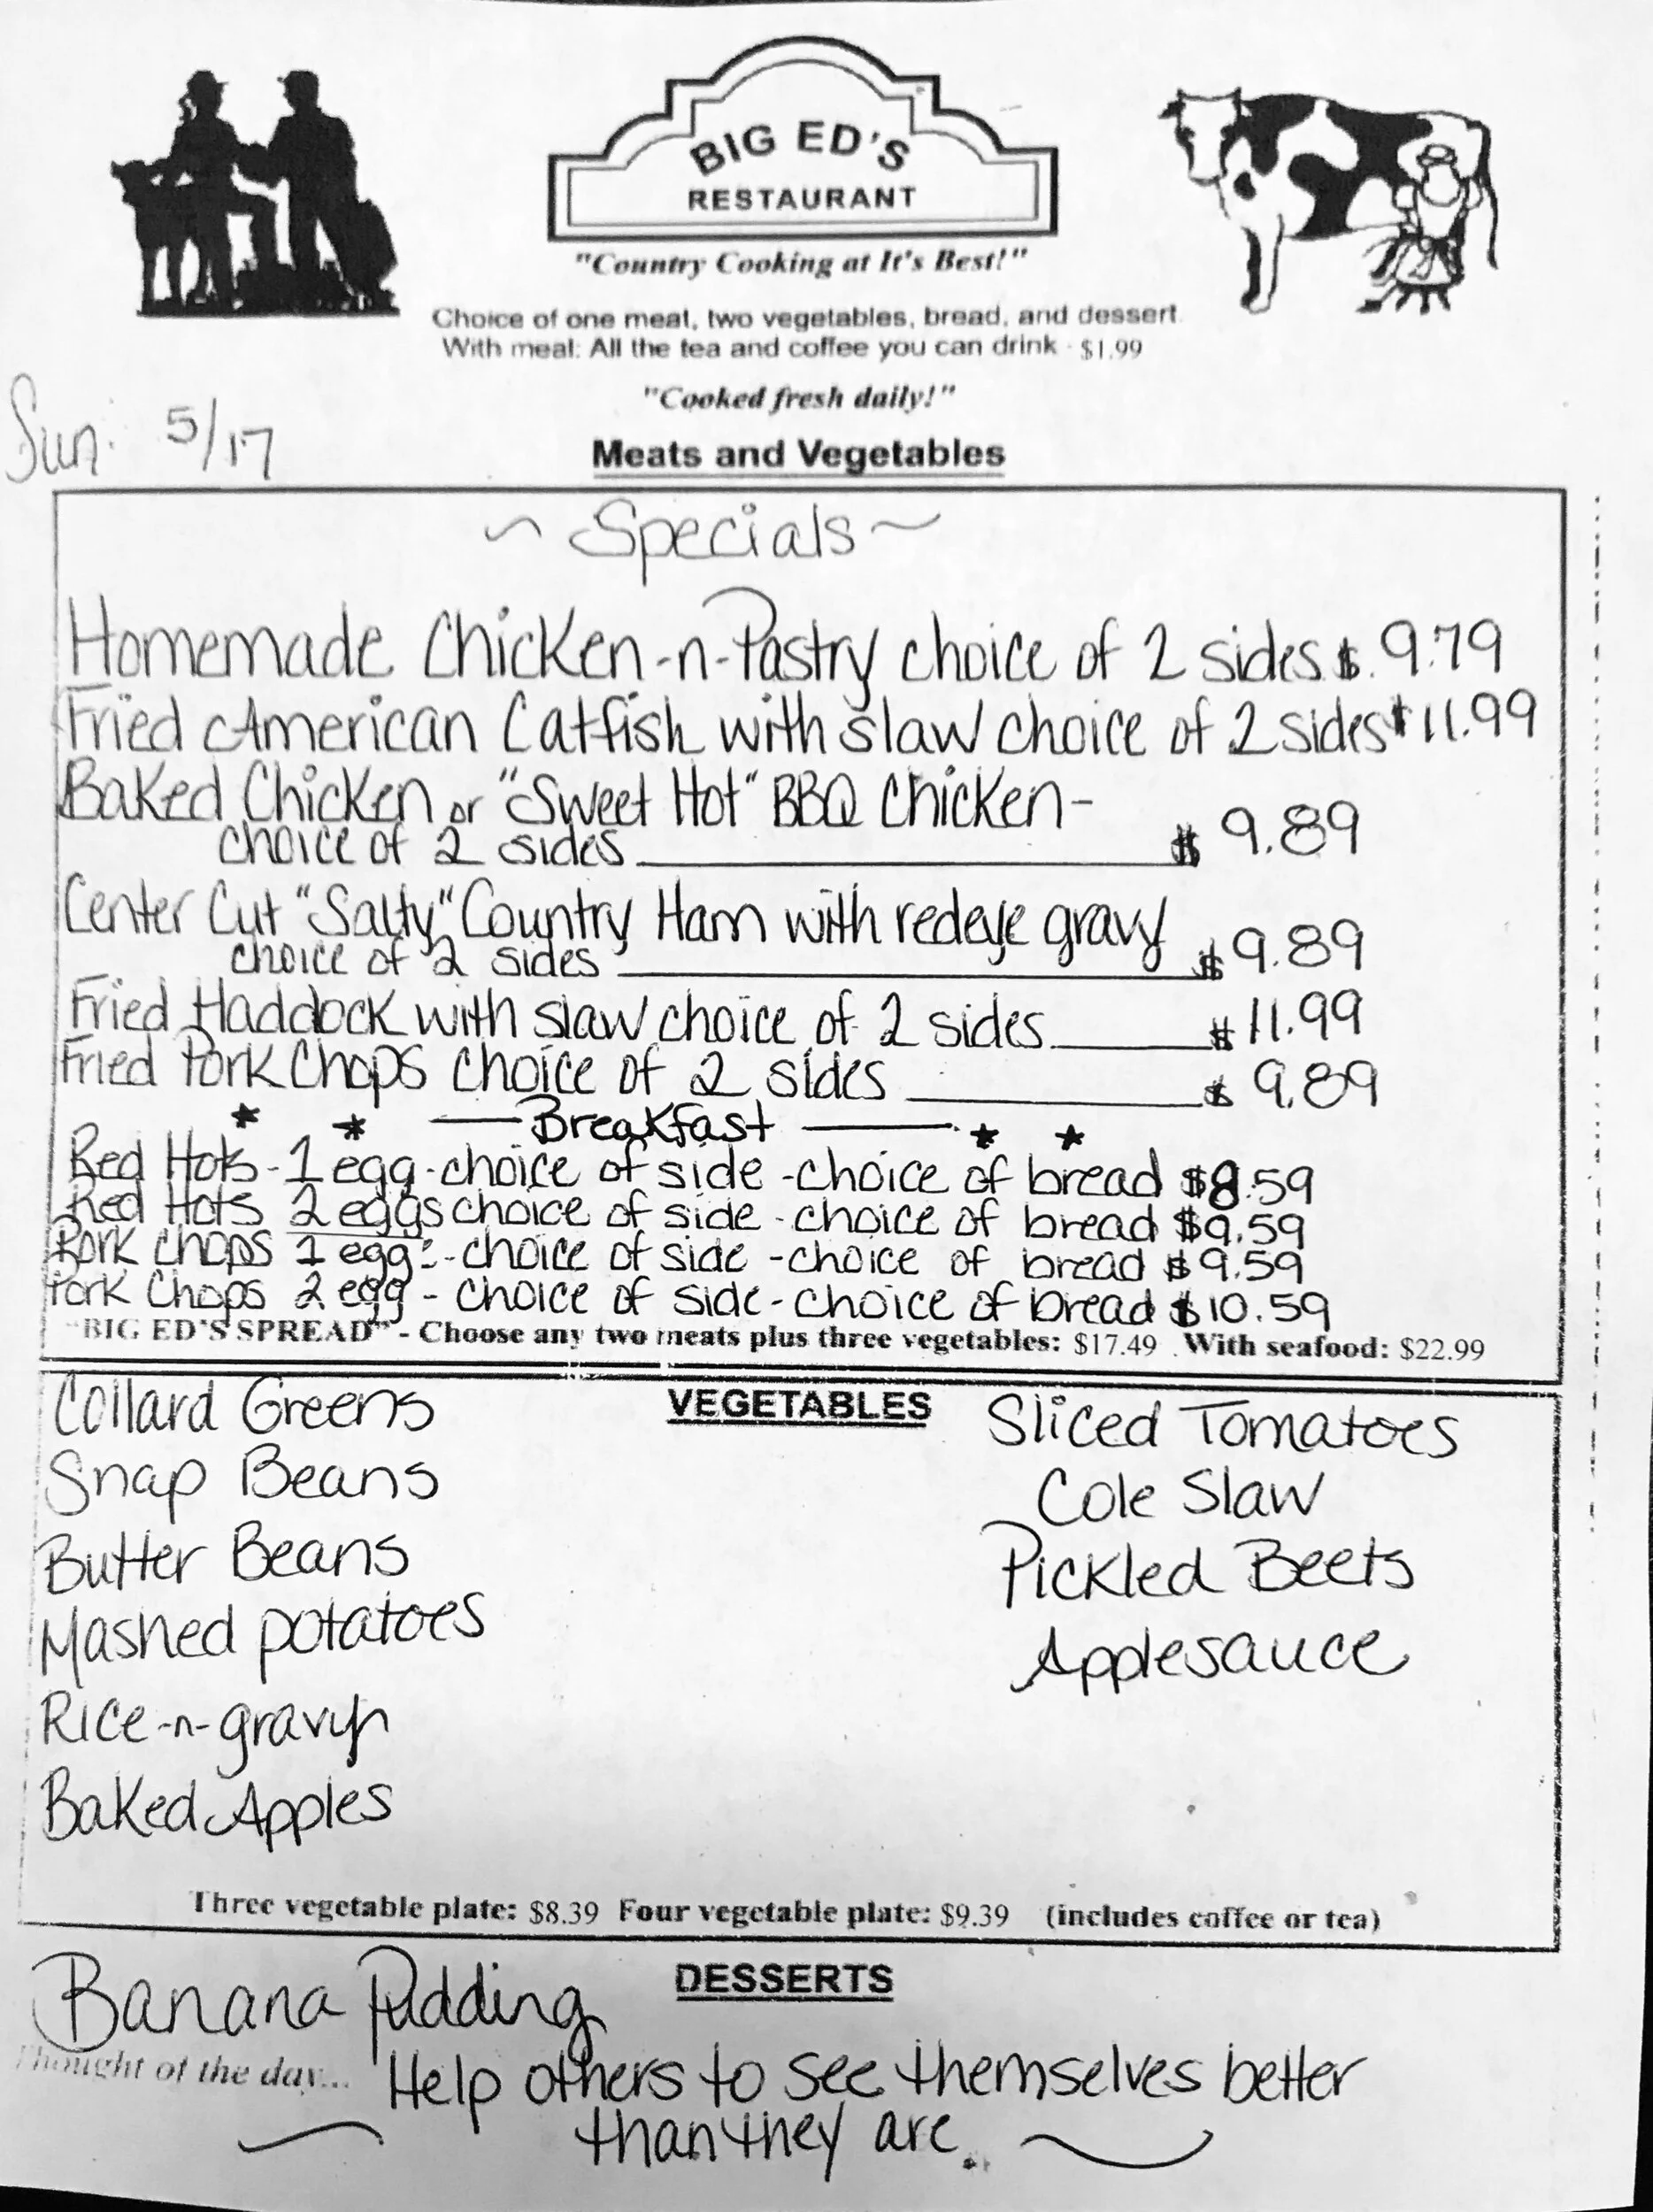 BIG ED'S
RESTAURANT
"Country Cooking at It's Best!"
Choice of one meat, two vegetables, bread, and dessert.
With meal: All the tea and coffee you can drink - $1.99
"Cooked fresh daily!"
Sun. 5/17
Meats and Vegetables
~ Specials ~
Homemade Chicken-n-Pastry choice of 2 sides $. 9.79
Fried American Catfish with slaw choice of 2 sides $11.99
Baked Chicken or "Sweet Hot" BBQ Chicken-
choice of 2 sides $ 9.89
Center Cut "Salty" Country Ham with redeye gravy
choice of 2 sides $ 9.89
Fried Haddock with slaw choice of 2 sides $ 11.99
Fried Pork Chops choice of 2 sides $ 9.89
* * — Breakfast — * *
Red Hots - 1 egg - choice of side - choice of bread $8.59
Red Hots 2 eggs choice of side - choice of bread $9.59
Pork Chops 1 egg - choice of side - choice of bread $9.59
Pork Chops 2 egg - choice of side - choice of bread $10.59
"BIG ED'S SPREAD" - Choose any two meats plus three vegetables: $17.49 . With seafood: $22.99
VEGETABLES
Collard Greens
Snap Beans
Butter Beans
Mashed potatoes
Rice-n-gravy
Baked Apples
Sliced Tomatoes
Cole Slaw
Pickled Beets
Applesauce
Three vegetable plate: $8.39 Four vegetable plate: $9.39 (includes coffee or tea)
DESSERTS
Banana Pudding
Thought of the day... Help others to see themselves better
than they are.